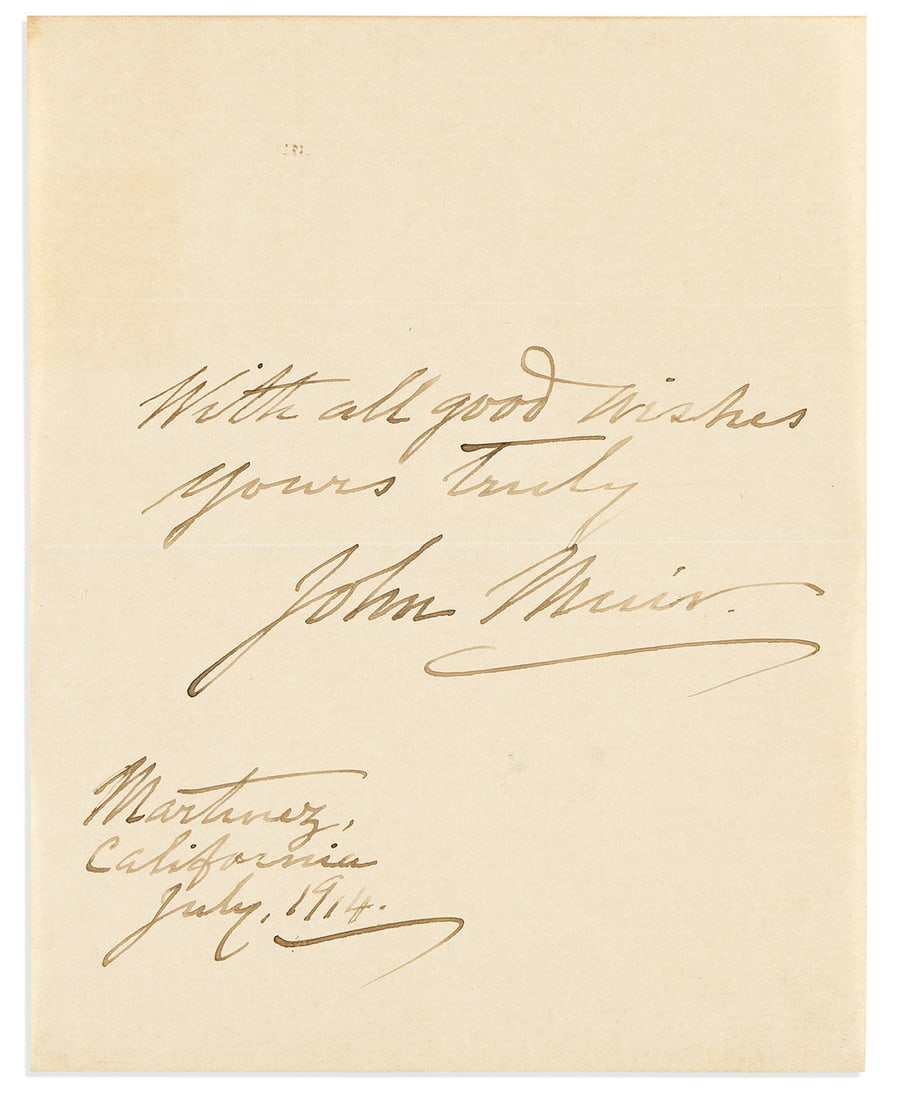 With all good wishes
yours truly
John Muir.
Martinez,
California
July, 1914.